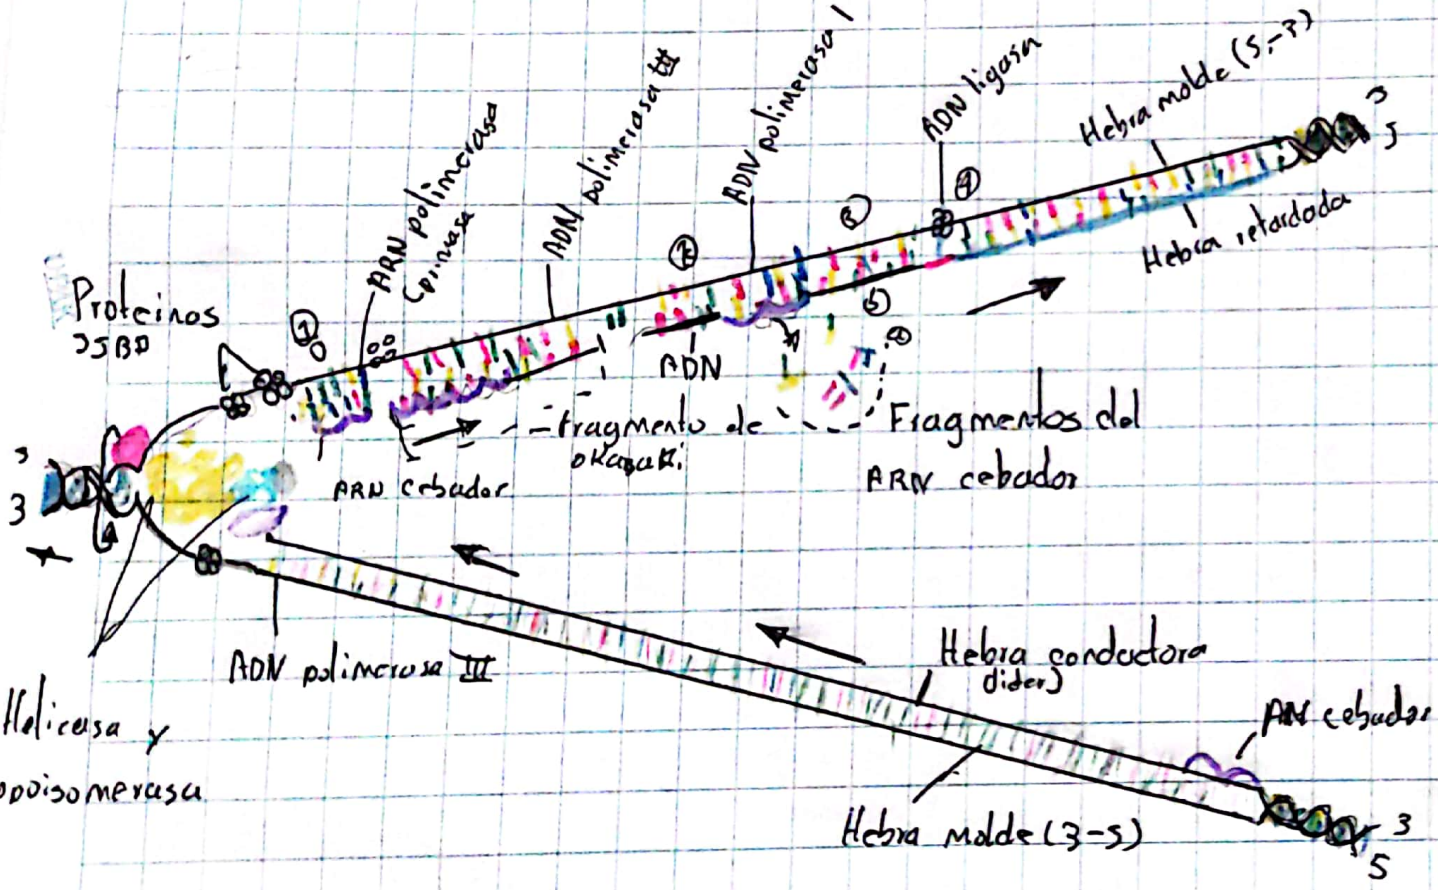 Proteinas
SSBP
①
ARN polimerasa
(primasa
ADN polimerasa III
②
ADN polimerasa I
③
ADN ligasa
④
Hebra molde (5-3)
3
5
Hebra retardada
⑤
ADN
Fragmento de
okazaki
Fragmentos del
ARN cebador
ARN cebador
3
ADN polimerasa III
Helicasa y
opoisomerasa
Hebra conductora
lider)
AN cebador
Hebra molde (3-5)
3
5